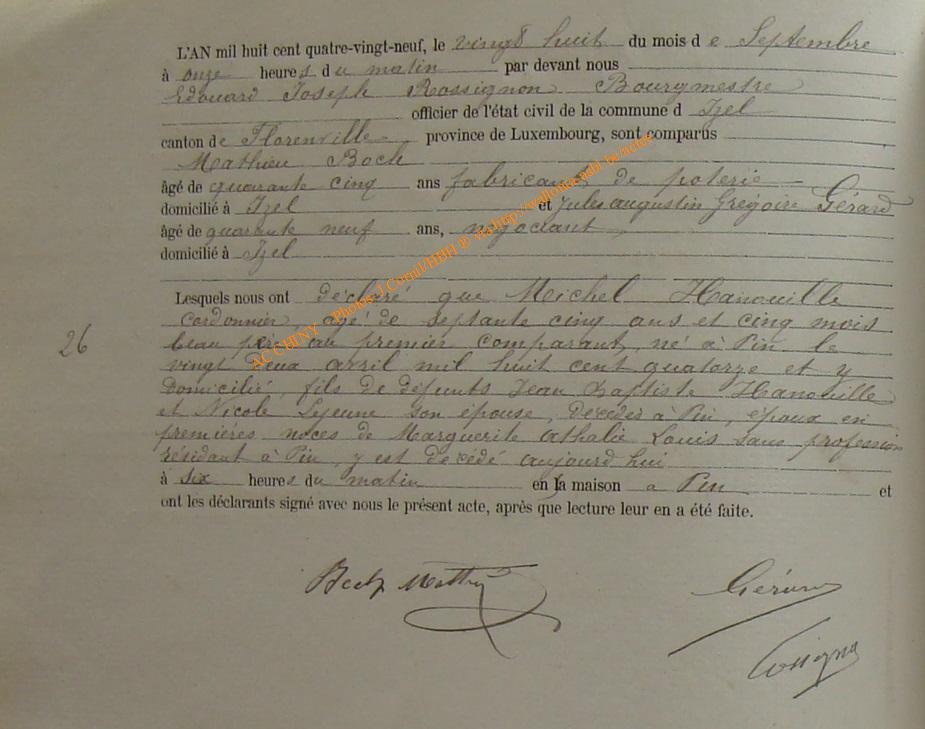 L'AN mil huit cent quatre-vingt-neuf, le vingt huit du mois d e Septembre
à onze heures du matin par devant nous
Edouard Joseph Rossignon Bourgmestre
officier de l'état civil de la commune d Izel
canton de Florenville province de Luxembourg, sont comparus
Mathieu Bock
âgé de quarante cinq ans fabricant de poterie
domicilié à Izel et Jules augustin Grégoire Gérard
âgé de quarante neuf ans, négociant
domicilié à Izel
Lesquels nous ont déclaré que Michel Hanouille
cordonnier, agé de septante cinq ans et cinq mois
26
beau père au premier comparant, né à Pin le
vingt deux avril mil huit cent quatorze et y
domicilié, fils de défunts Jean Baptiste Hanouille
et Nicole Lejeune son épouse, décédés à Pin, époux en
premières noces de Marguerite athalie Louis sans profession
résidant à Pin, y est décédé aujourd hui
à six heures du matin en sa maison a Pin et
ont les déclarants signé avec nous le présent acte, après que lecture leur en a été faite.
Gérard
ACCHINY - Photos J.Cornil/HBH ®